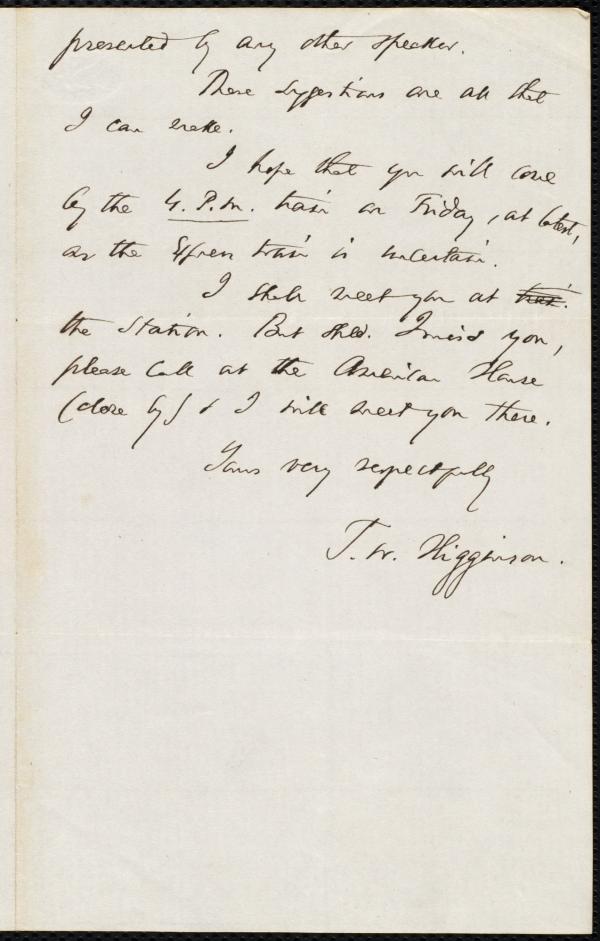 presented by any other speaker.
These suggestions are all that
I can make.
I hope that you will come
by the 4. P.M. train on Friday, at latest,
as the Express train is uncertain.
I shall meet you at train.
the Station. But shd. I miss you,
please call at the American House
(close by) & I will meet you there.
Yours very respectfully
T. W. Higginson.